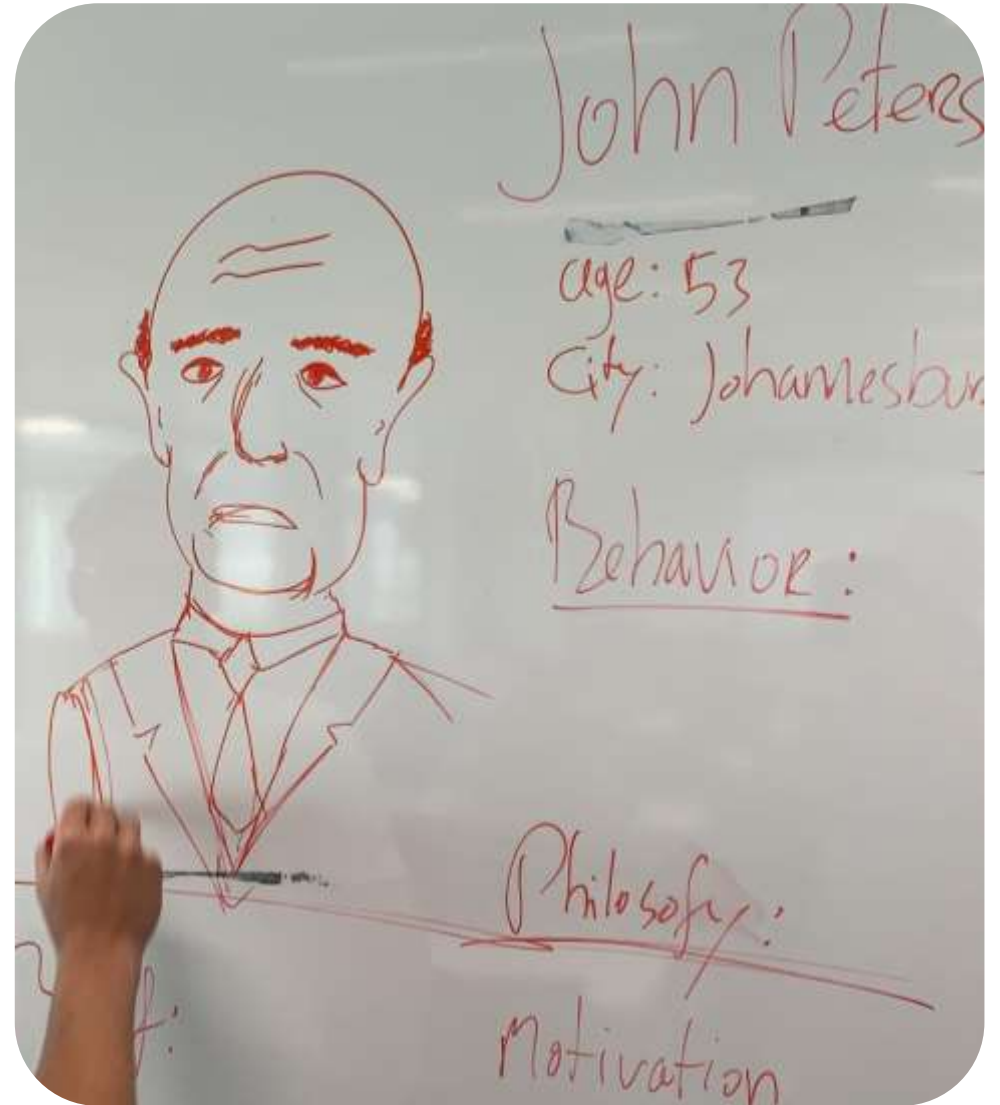 John Peters
age: 53
City: Johannesbur
Behavior:
Philosofy:
f:
Motivation